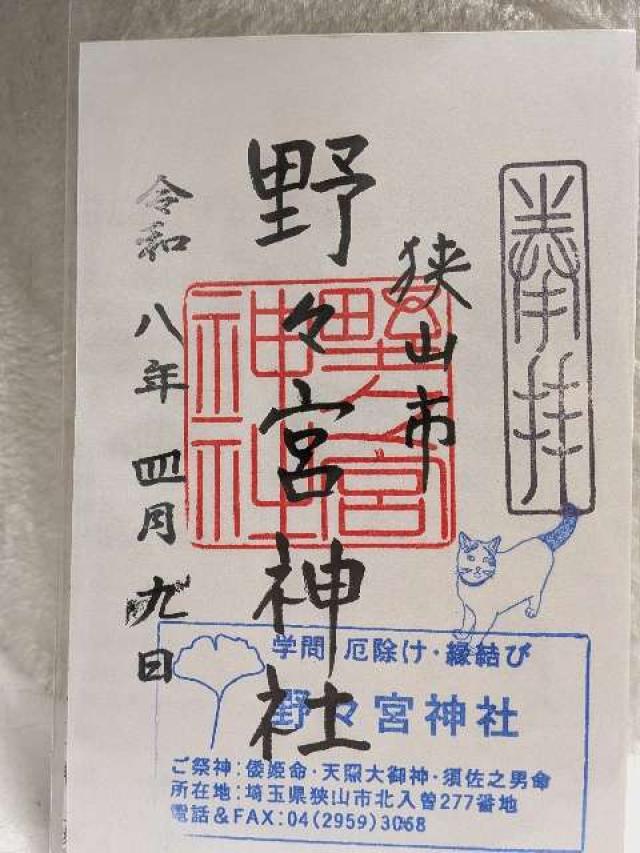 奉拝
狭山市
野々宮神社
野々宮神社
令和八年四月九日
学問 厄除け・縁結び
野々宮神社
ご祭神:倭姫命・天照大御神・須佐之男命
所在地:埼玉県狭山市北入曽277番地
電話&FAX:04(2959)3068